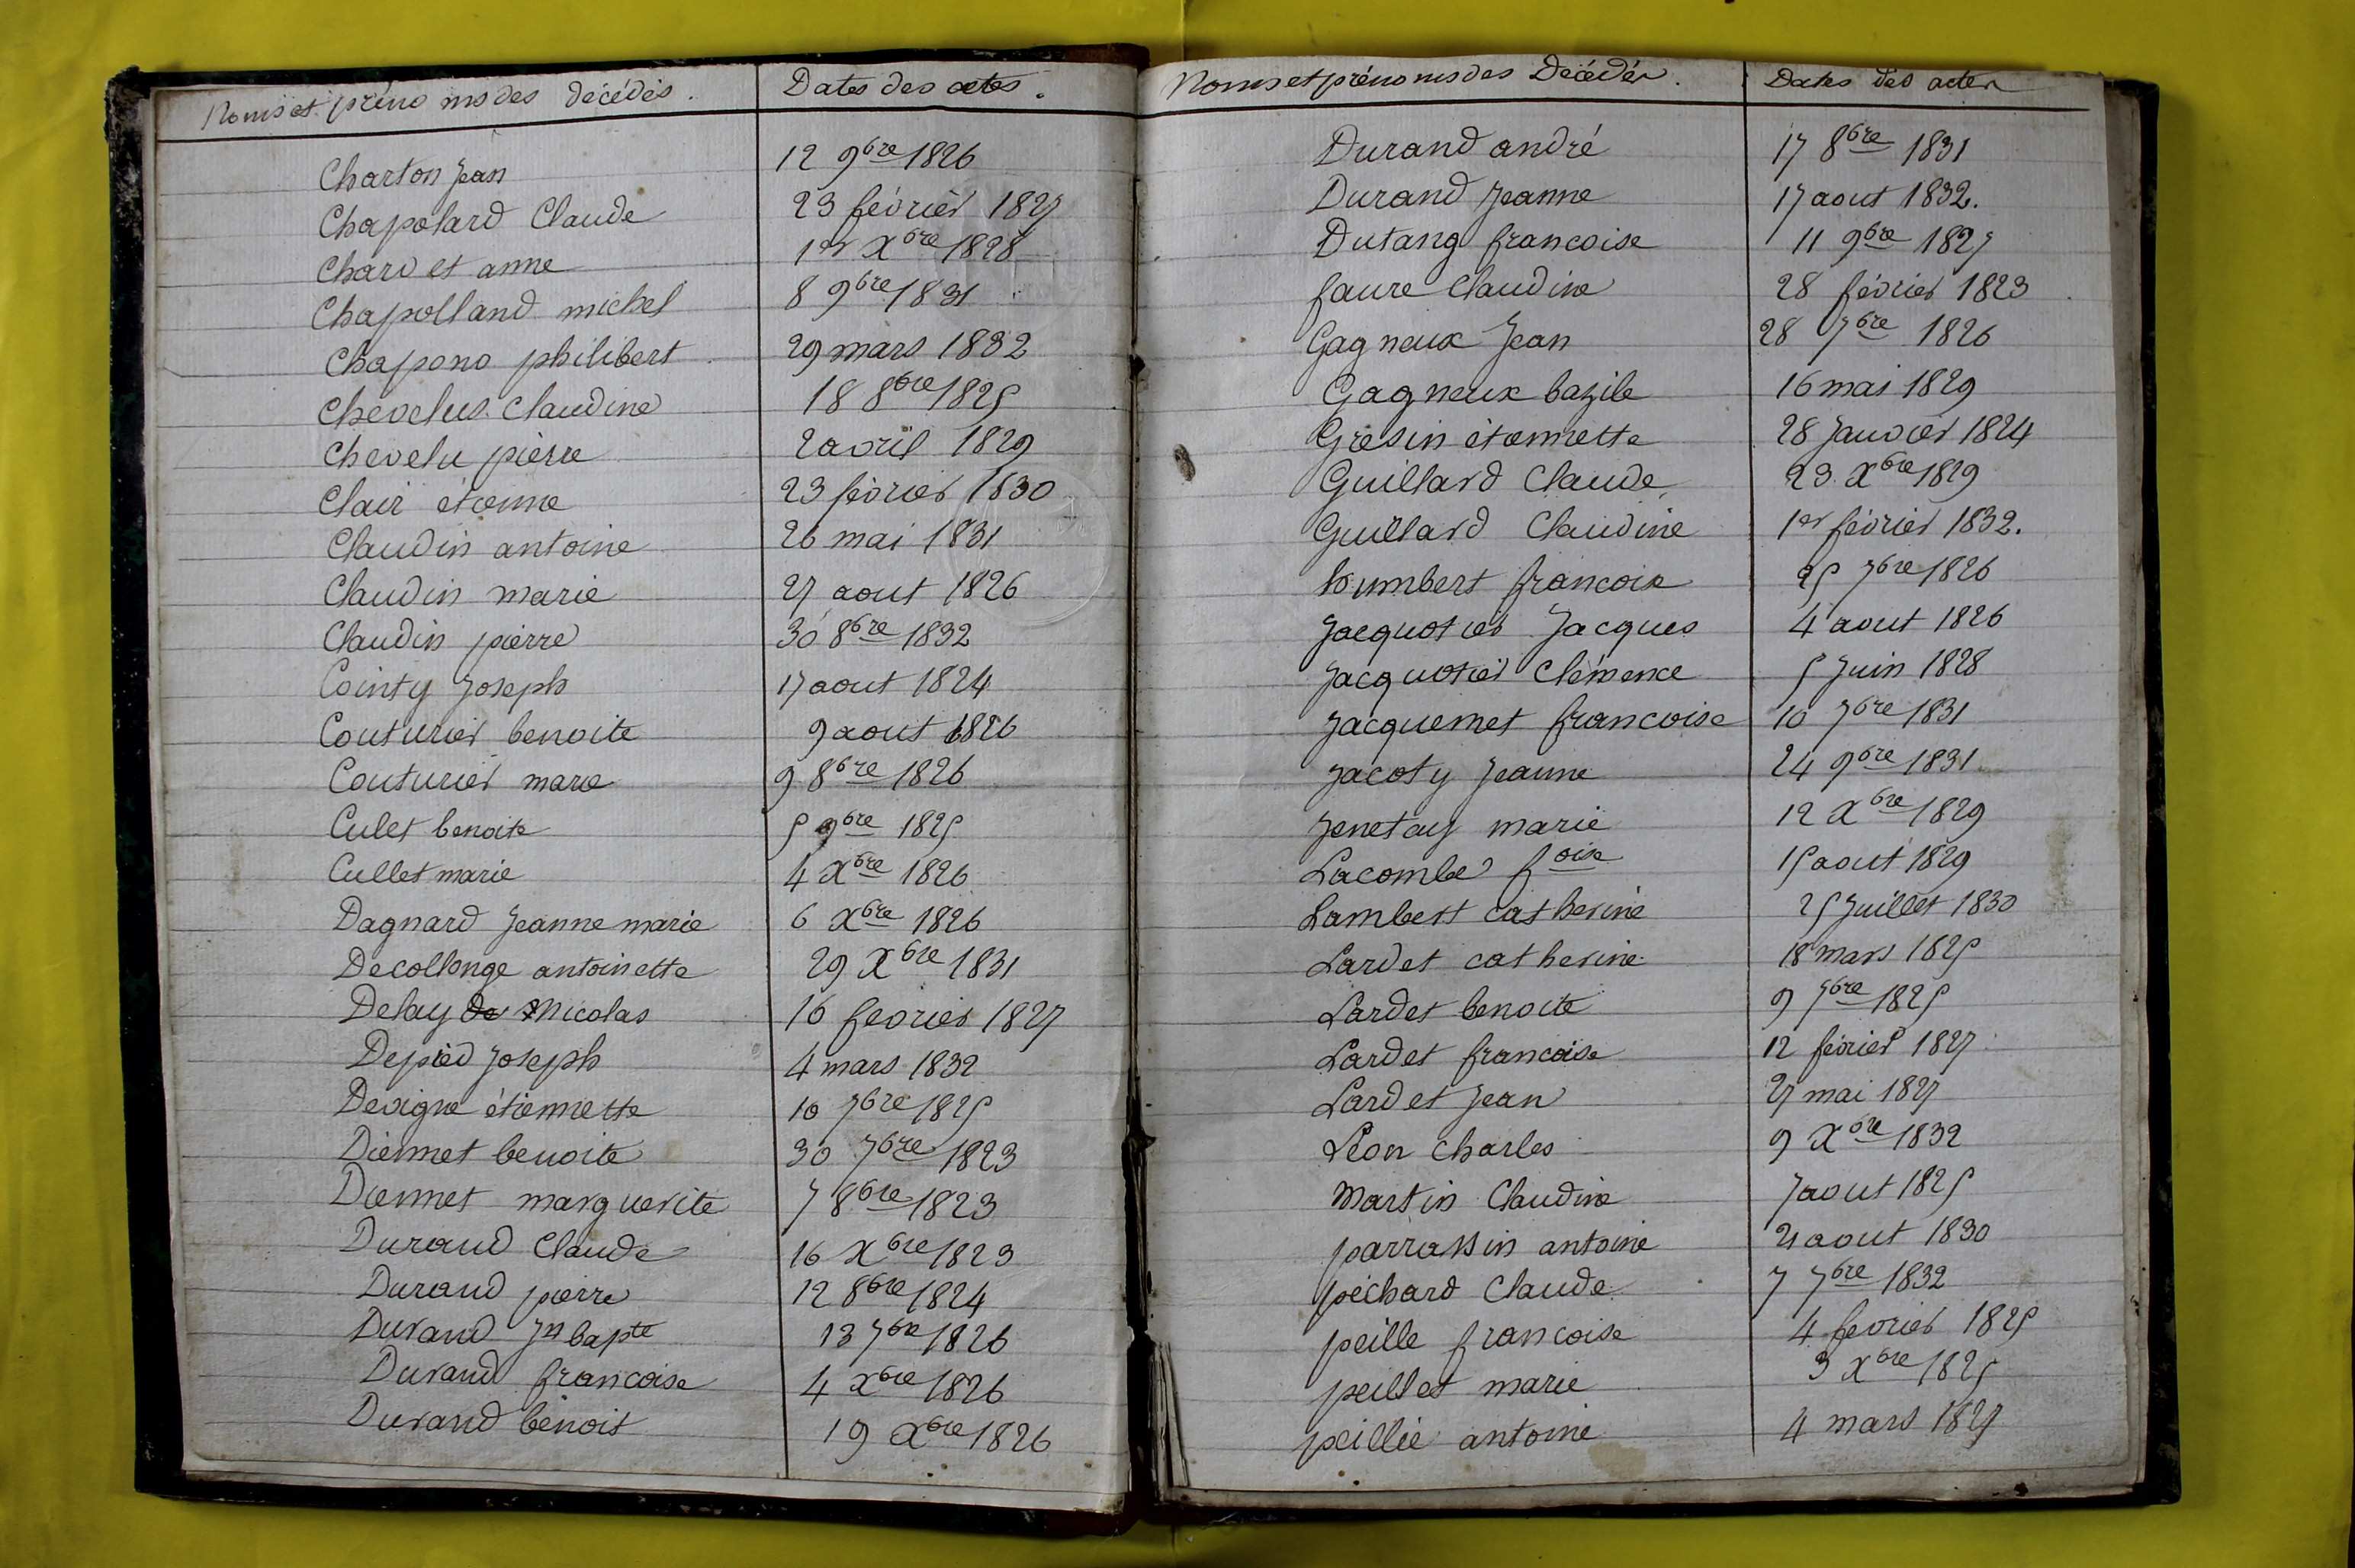 Noms et prénoms des décédés. Dates des actes.
Charton Jean 12 9bre 1826
Chapolard Claude 23 février 1827
Charvet anne 1er Xbre 1828
Chapolland michel 8 9bre 1831
Chapono philibert 29 mars 1832
Chevelus Claudine 18 8bre 1825
Chevelu pierre 2 avril 1829
Clair étienne 23 février 1830
Claudin antoine 26 mai 1831
Claudin marie 27 aout 1826
Claudin pierre 30 8bre 1832
Cointy Joseph 17 aout 1824
Couturier benoite 9 aout 1826
Couturier marie 9 8bre 1826
Culet benoite 5 9bre 1825
Cullet marie 4 Xbre 1826
Dagnard Jeanne marie 6 Xbre 1826
Decollonge antoinette 29 Xbre 1831
Delay de Nicolas 16 fevrier 1827
Depied Joseph 4 mars 1832
Devigne étiennette 10 7bre 1825
Diennet benoite 30 7bre 1823
Diennet marguerite 7 8bre 1823
Durand Claude 16 Xbre 1823
Durand pierre 12 8bre 1824
Durand Jn bapte 13 7bre 1826
Durand francoise 4 Xbre 1826
Durand benoit 19 Xbre 1826
Noms et prénoms des Décédés. Dates des actes
Durand andré 17 8bre 1831
Durand Jeanne 17 aout 1832.
Dutang francoise 11 9bre 1827
faure Claudine 28 février 1823
Gagneux Jean 28 7bre 1826
Gagneux bazile 16 mai 1829
Gresin étiennette 28 Janvier 1824
Guillard Claude 23 Xbre 1829
Guillard Claudine 1er février 1832.
humbert francois 25 7bre 1826
Jacquotier Jacques 4 aout 1826
Jacquotier Clémence 5 Juin 1828
Jacquemet francoise 10 7bre 1831
Jacoty Jeanne 24 9bre 1831
Jenetay marie 12 Xbre 1829
Lacombe foise 15 aout 1829
Lambert catherine 25 Juillet 1830
Lardet catherine 18 mars 1825
Lardet benoite 9 7bre 1825
Lardet francoise 12 février 1827
Lardet Jean 27 mai 1827
Léon Charles 9 Xbre 1832
Martin Claudine 7 aout 1825
parrassin antoine 21 aout 1830
péchard Claude 7 7bre 1832
peille francoise 4 fevrier 1825
peillet marie 3 Xbre 1825
peillie antoine 4 mars 1827